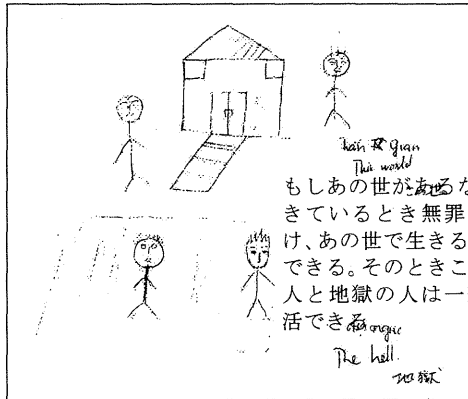 This world
もしあの世があるな
きているとき無罪
け、あの世で生きる
できる。そのときこ
人と地獄の人は一
活できる
The hell.
地獄